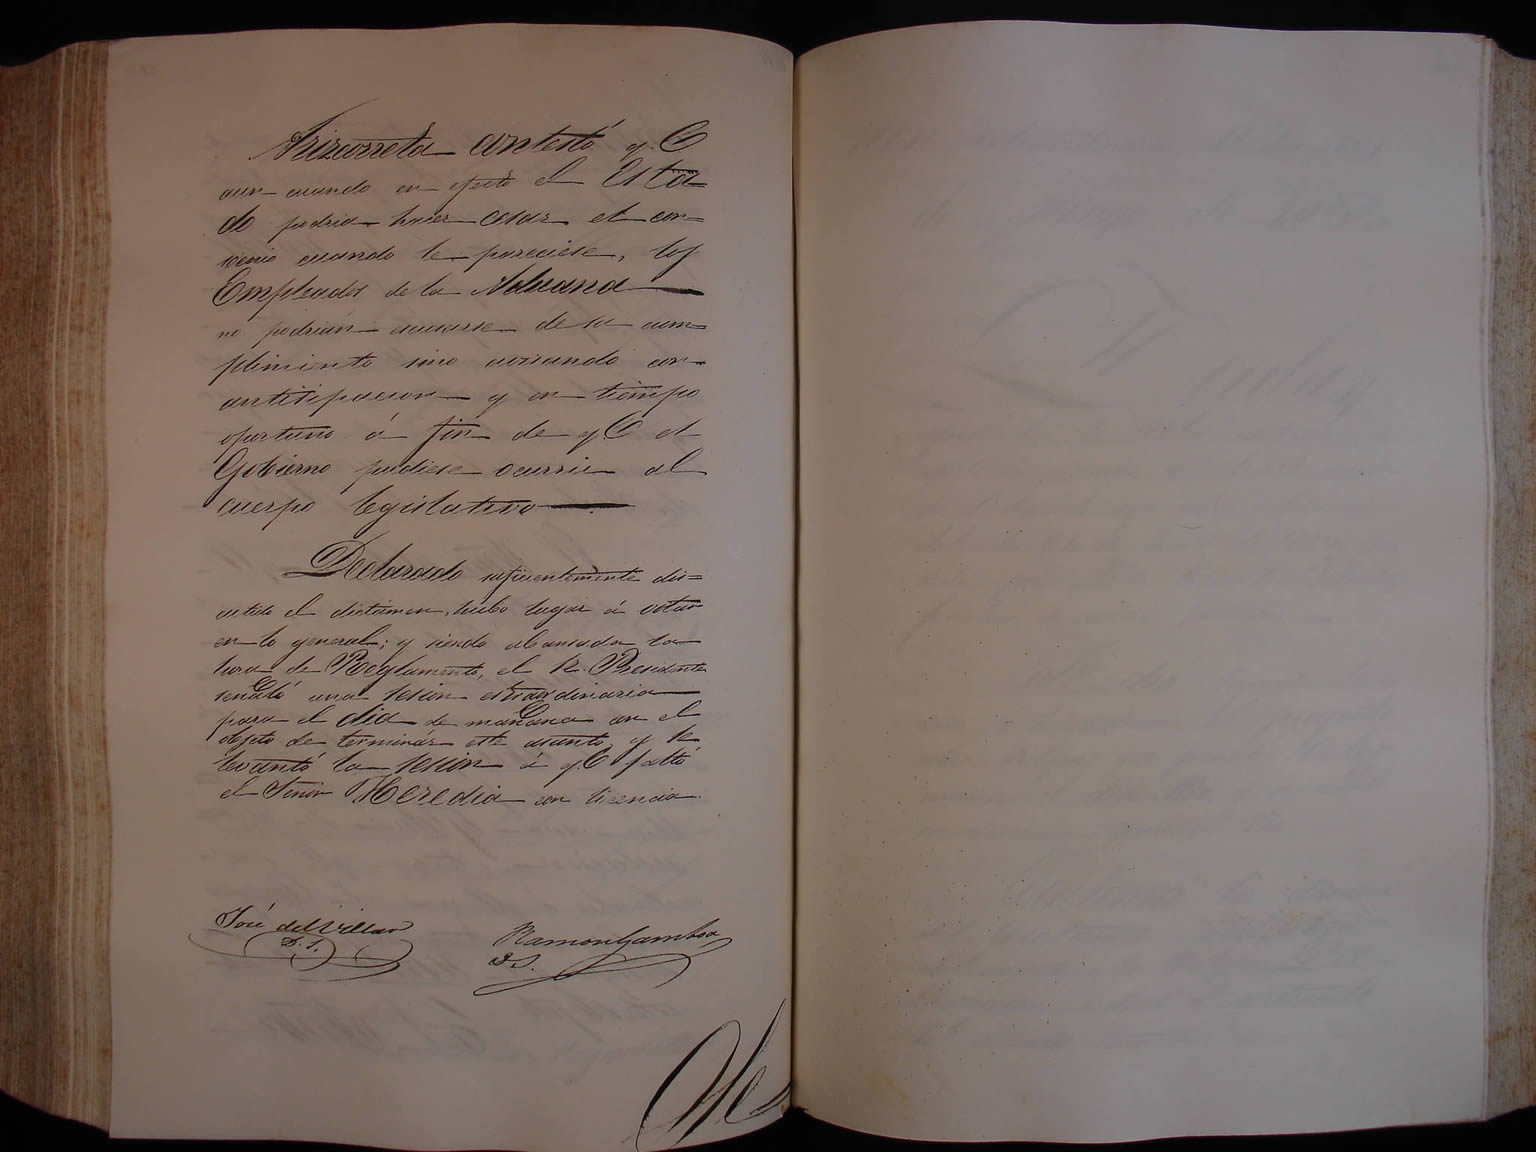 Arizcorreta contestó q.e
aun cuando en efecto el Esta=
do podria hacer cesar el con=
venio cuando le pareciese, los
Empleados de la Aduana
no podrian escusarse de su cum=
plimiento sino avisando con
antisipacion y en tiempo
oportuno á fin de q.e el
Gobierno pudiese ocurrir al
cuerpo legislativo
Declarado suficientemente dis=
cutido el dictámen, hubo lugar á votar
en lo general; y siendo abansada la
hora de Reglamento, el Sr. Presidente
señaló una sesion estraordinaria
para el dia de mañana con el
objeto de terminár este asunto y se
levantó la sesion á q.e faltó
el Señor Heredia con licencia.
José del Villar Ramon Gamboa
D. S. D. S.